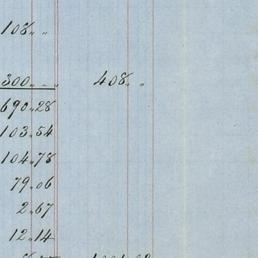 108 " "
300 " " 408 " "
690.28
103.54
104.78
79.06
2.67
12.14